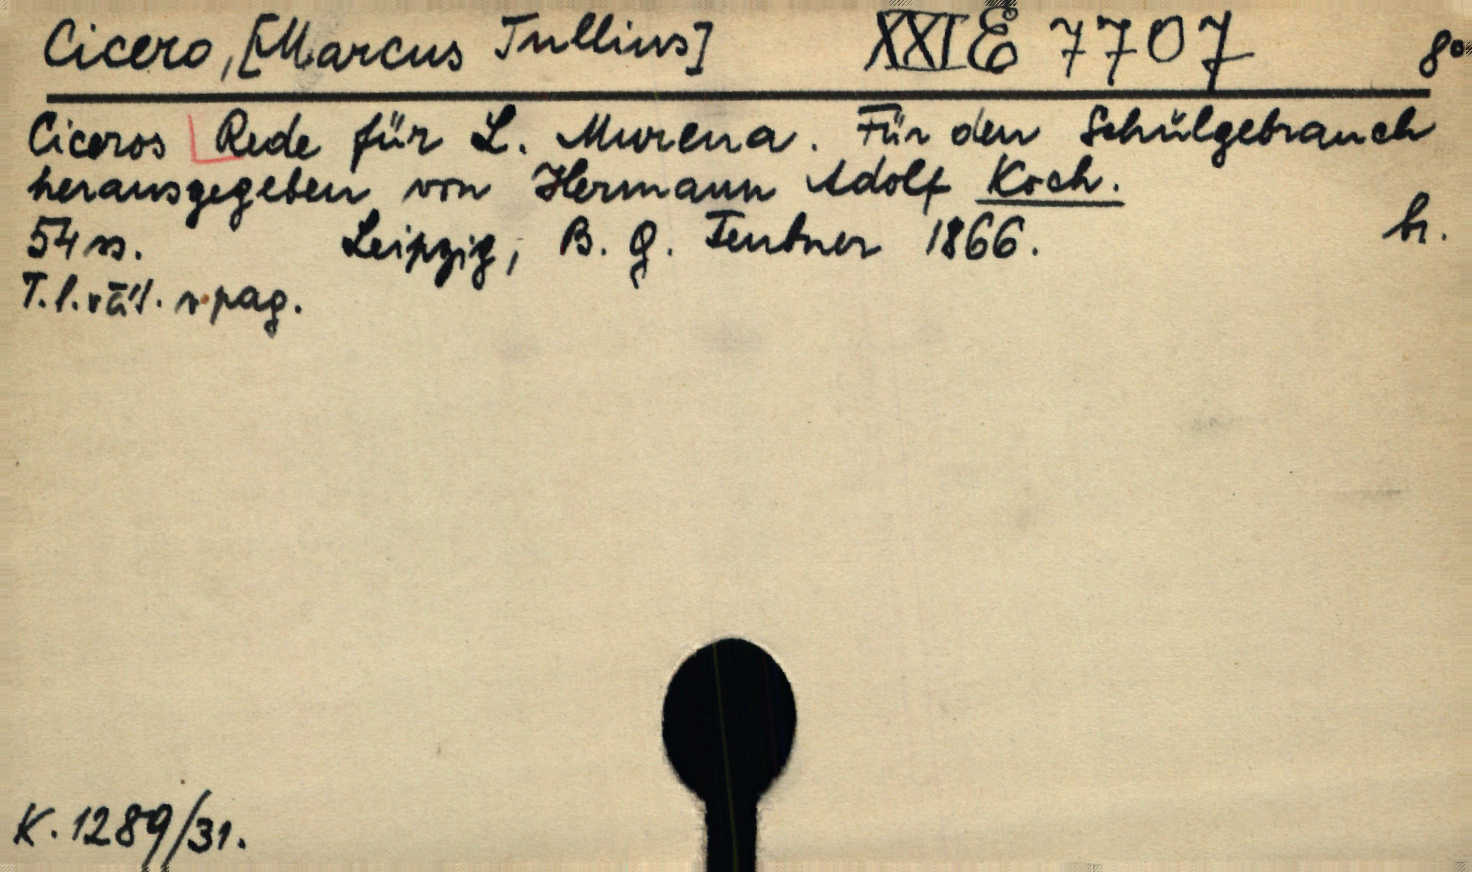 Cicero, [Marcus Tullius] XXI E 7707 8°
Ciceros Rede für L. Murena. Für den Schülgebrauch
herausgegeben von Hermann Adolf Koch.
54 ss. Leipzig, B. G. Teubner 1866. br.
T. l. pag.
K. 1289/31.